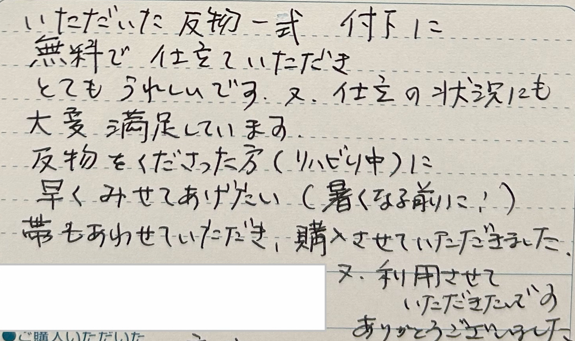 いただいた反物一式 付下に
無料で仕立ていただき
とてもうれしいです。又、仕立の状況にも
大変満足しています。
反物をくださった方(リハビリ中)に
早くみせてあげたい(暑くなる前に!)
帯もあわせていただき、購入させていただきました。
又、利用させて
いただきたいです
ありがとうございました
●ご購入いただいた